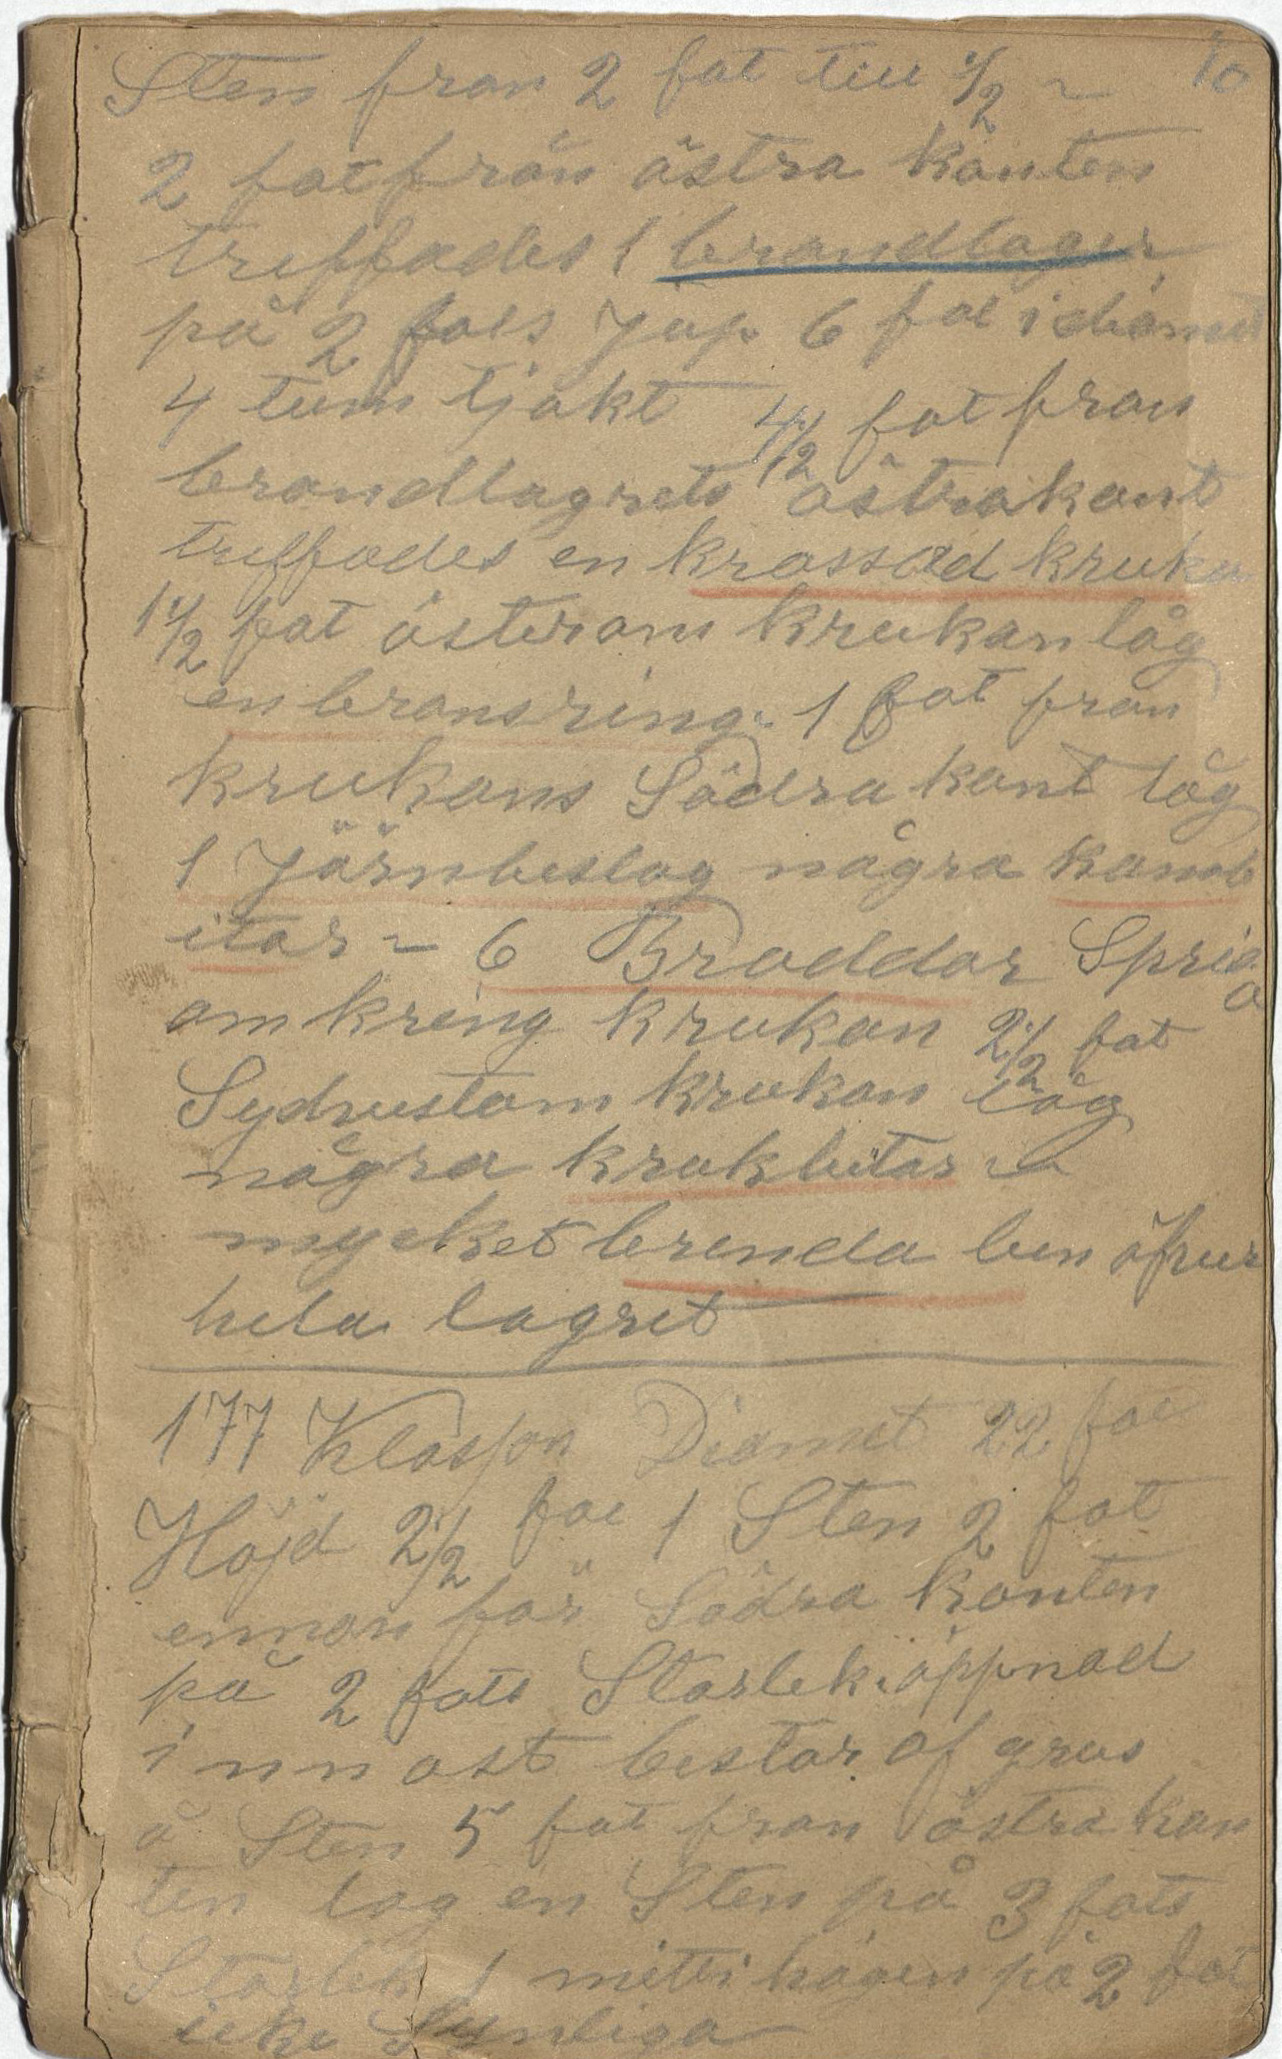 Sten fran 2 fot till 1/2 ~ 10
2 fot från östra kanten
treffades 1 brandlager
på 2 fots Jup. 6 fot i diamet
4 tum tjokt 4 1/2 fot fran
brandlagrets östra kant
treffades en krossad kruka
1 1/2 fot österom krukan låg
en bronsring. 1 fot fran
krukans Södra kant låg
1 Järnbeslag några kamb
itar ~ 6 Broddar Sprid
a
omkring krukan 2 1/2 fot
Sydvestom krukan låg
några krukbitar ~
mycket brenda ben öfver
hela lagret
177 Klasson Diamet 22 fot
Höjd 2 1/2 fot 1 Sten 2 fot
ennan för Södra kanten
på 2 fots Storlek öppnad
innast bestar af grus
å Sten 5 fot fran östra kan
ten lag en Sten på 3 fots
Storlek 1 mitti högen på 2 fot
icke Synliga